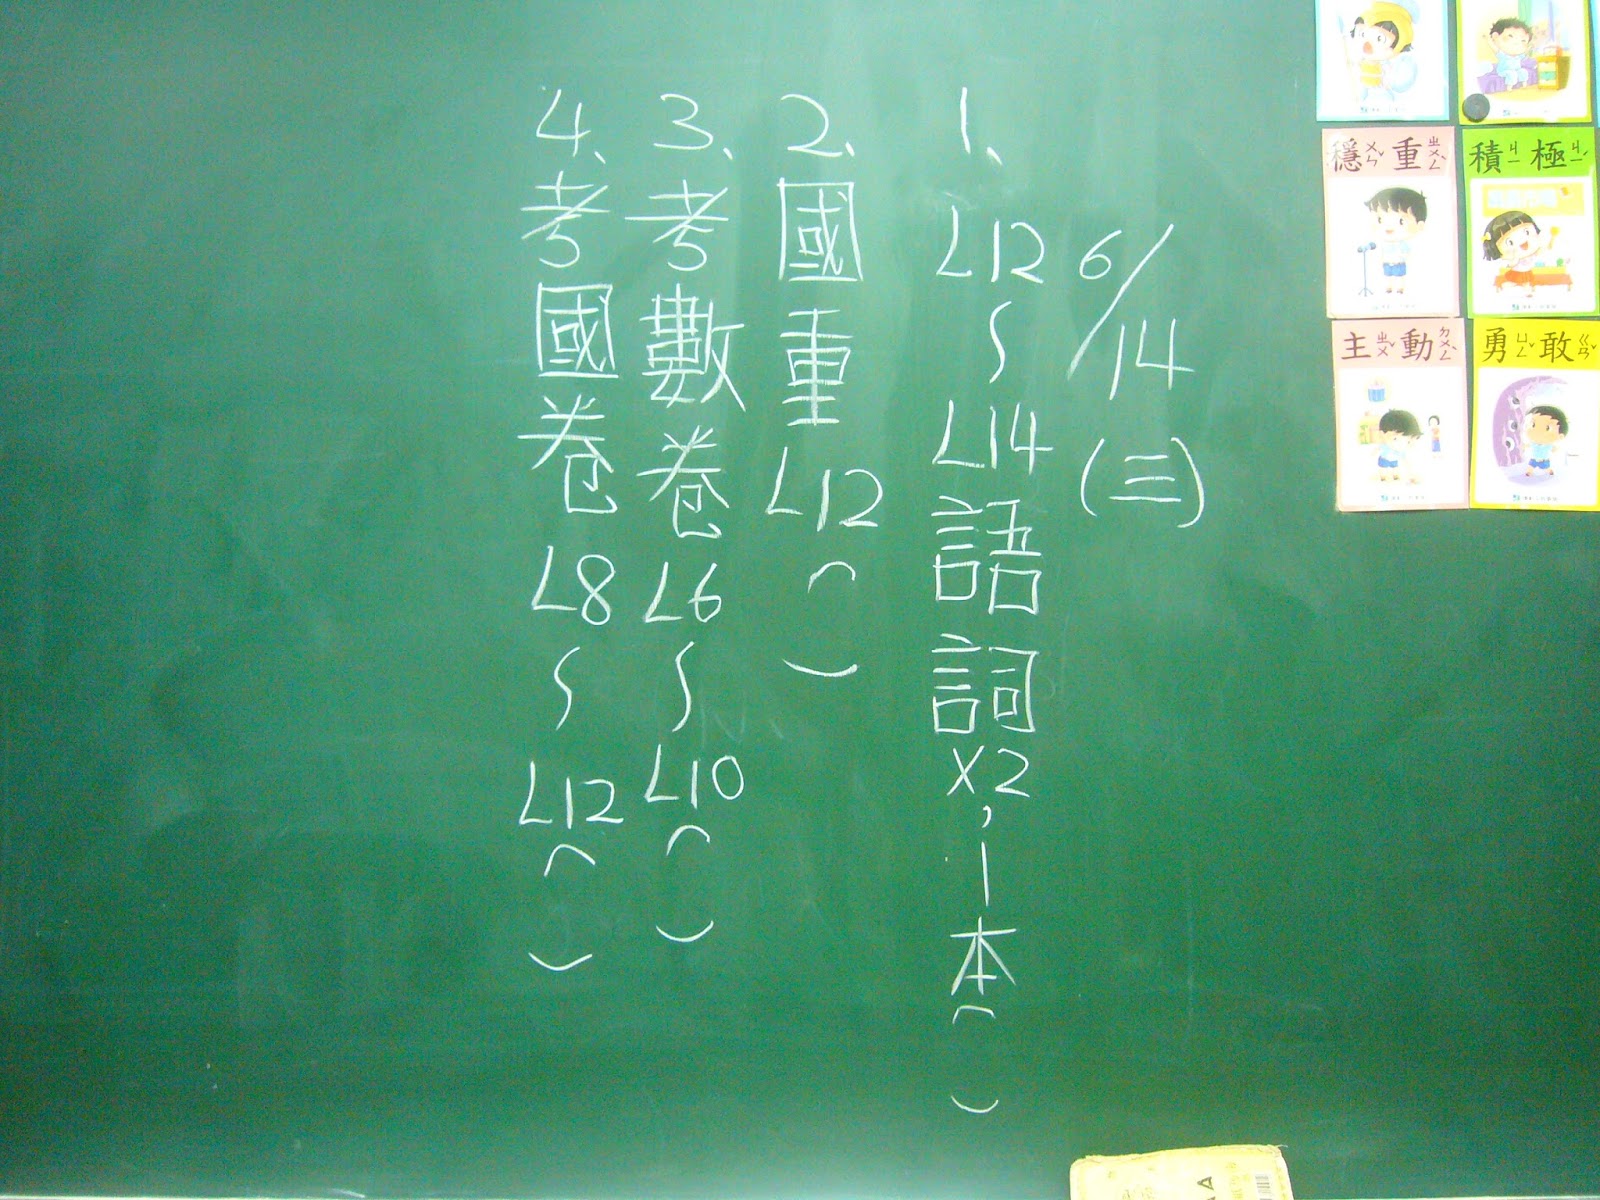 6/14(三)
1、L12~L14語詞x2,1本( )
2、國重L12( )
3、考數卷L6~L10( )
4、考國卷L8~L12( )
穩ㄨㄣˇ重ㄓㄨㄥˋ
積ㄐㄧ極ㄐㄧˊ
主ㄓㄨˇ動ㄉㄨㄥˋ
勇ㄩㄥˇ敢ㄍㄢˇ